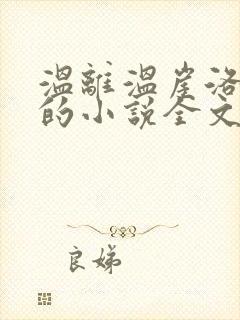 温離温崖洛
的小說全文
良娣